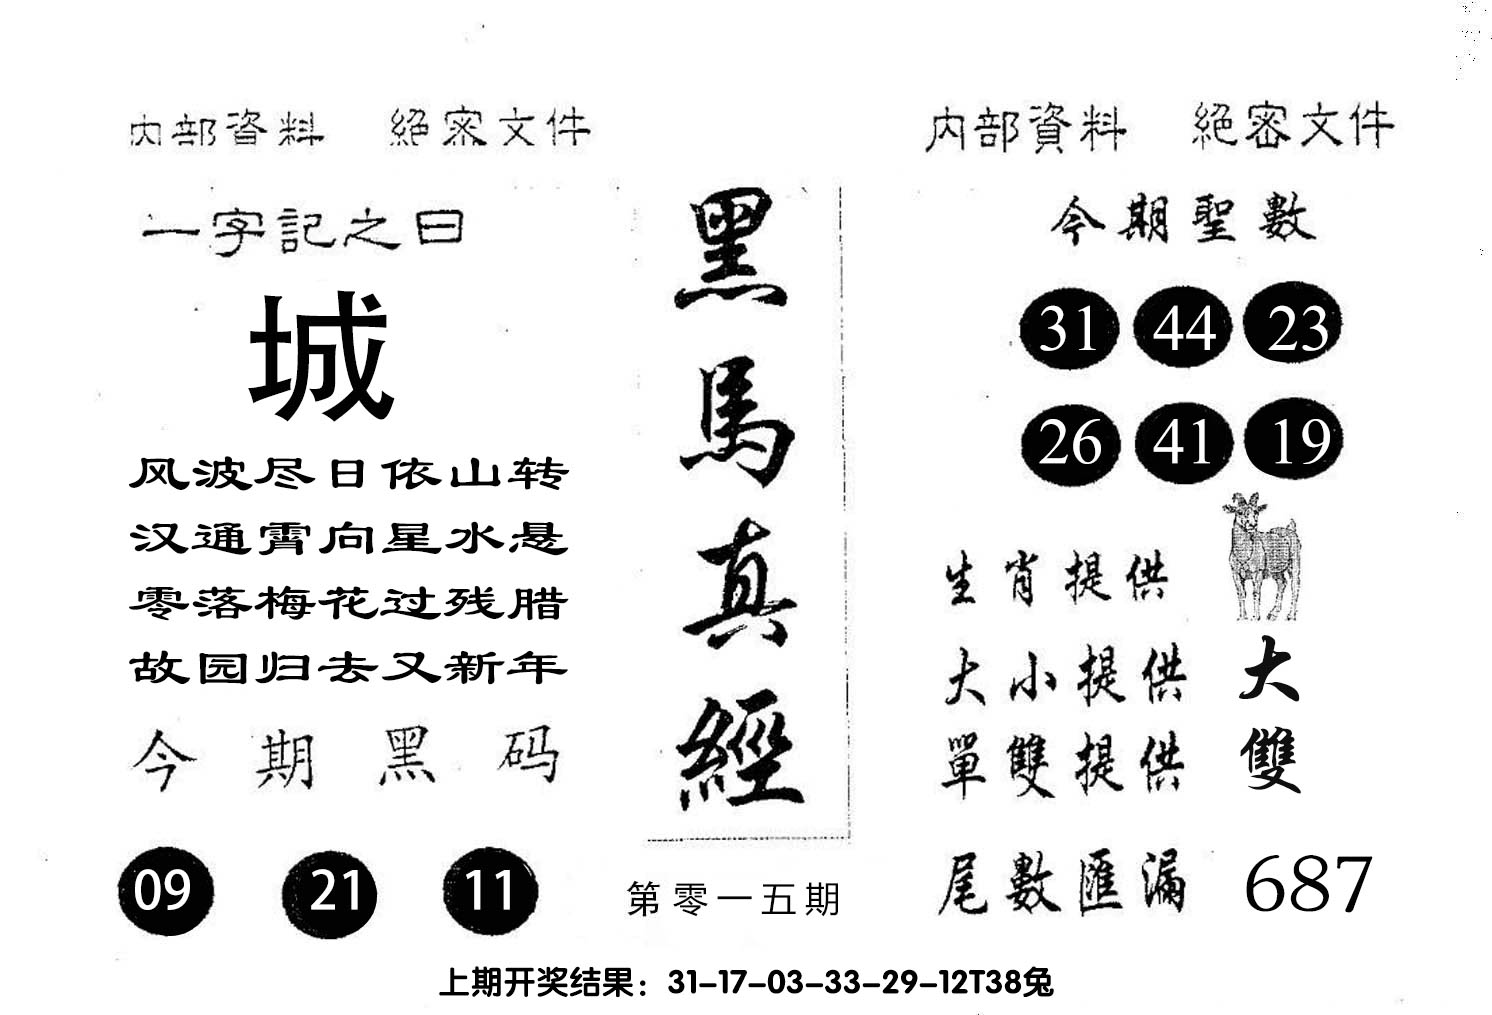 内部資料 絕密文件
一字記之曰
城
风波尽日依山转
汉通霄向星水悬
零落梅花过残腊
故园归去又新年
今期黑码
09 21 11
黑馬真經
第零一五期
内部資料 絕密文件
今期聖數
31 44 23
26 41 19
生肖提供
大小提供 大
單雙提供 雙
尾數匯漏 687
上期开奖结果：31-17-03-33-29-12T38兔